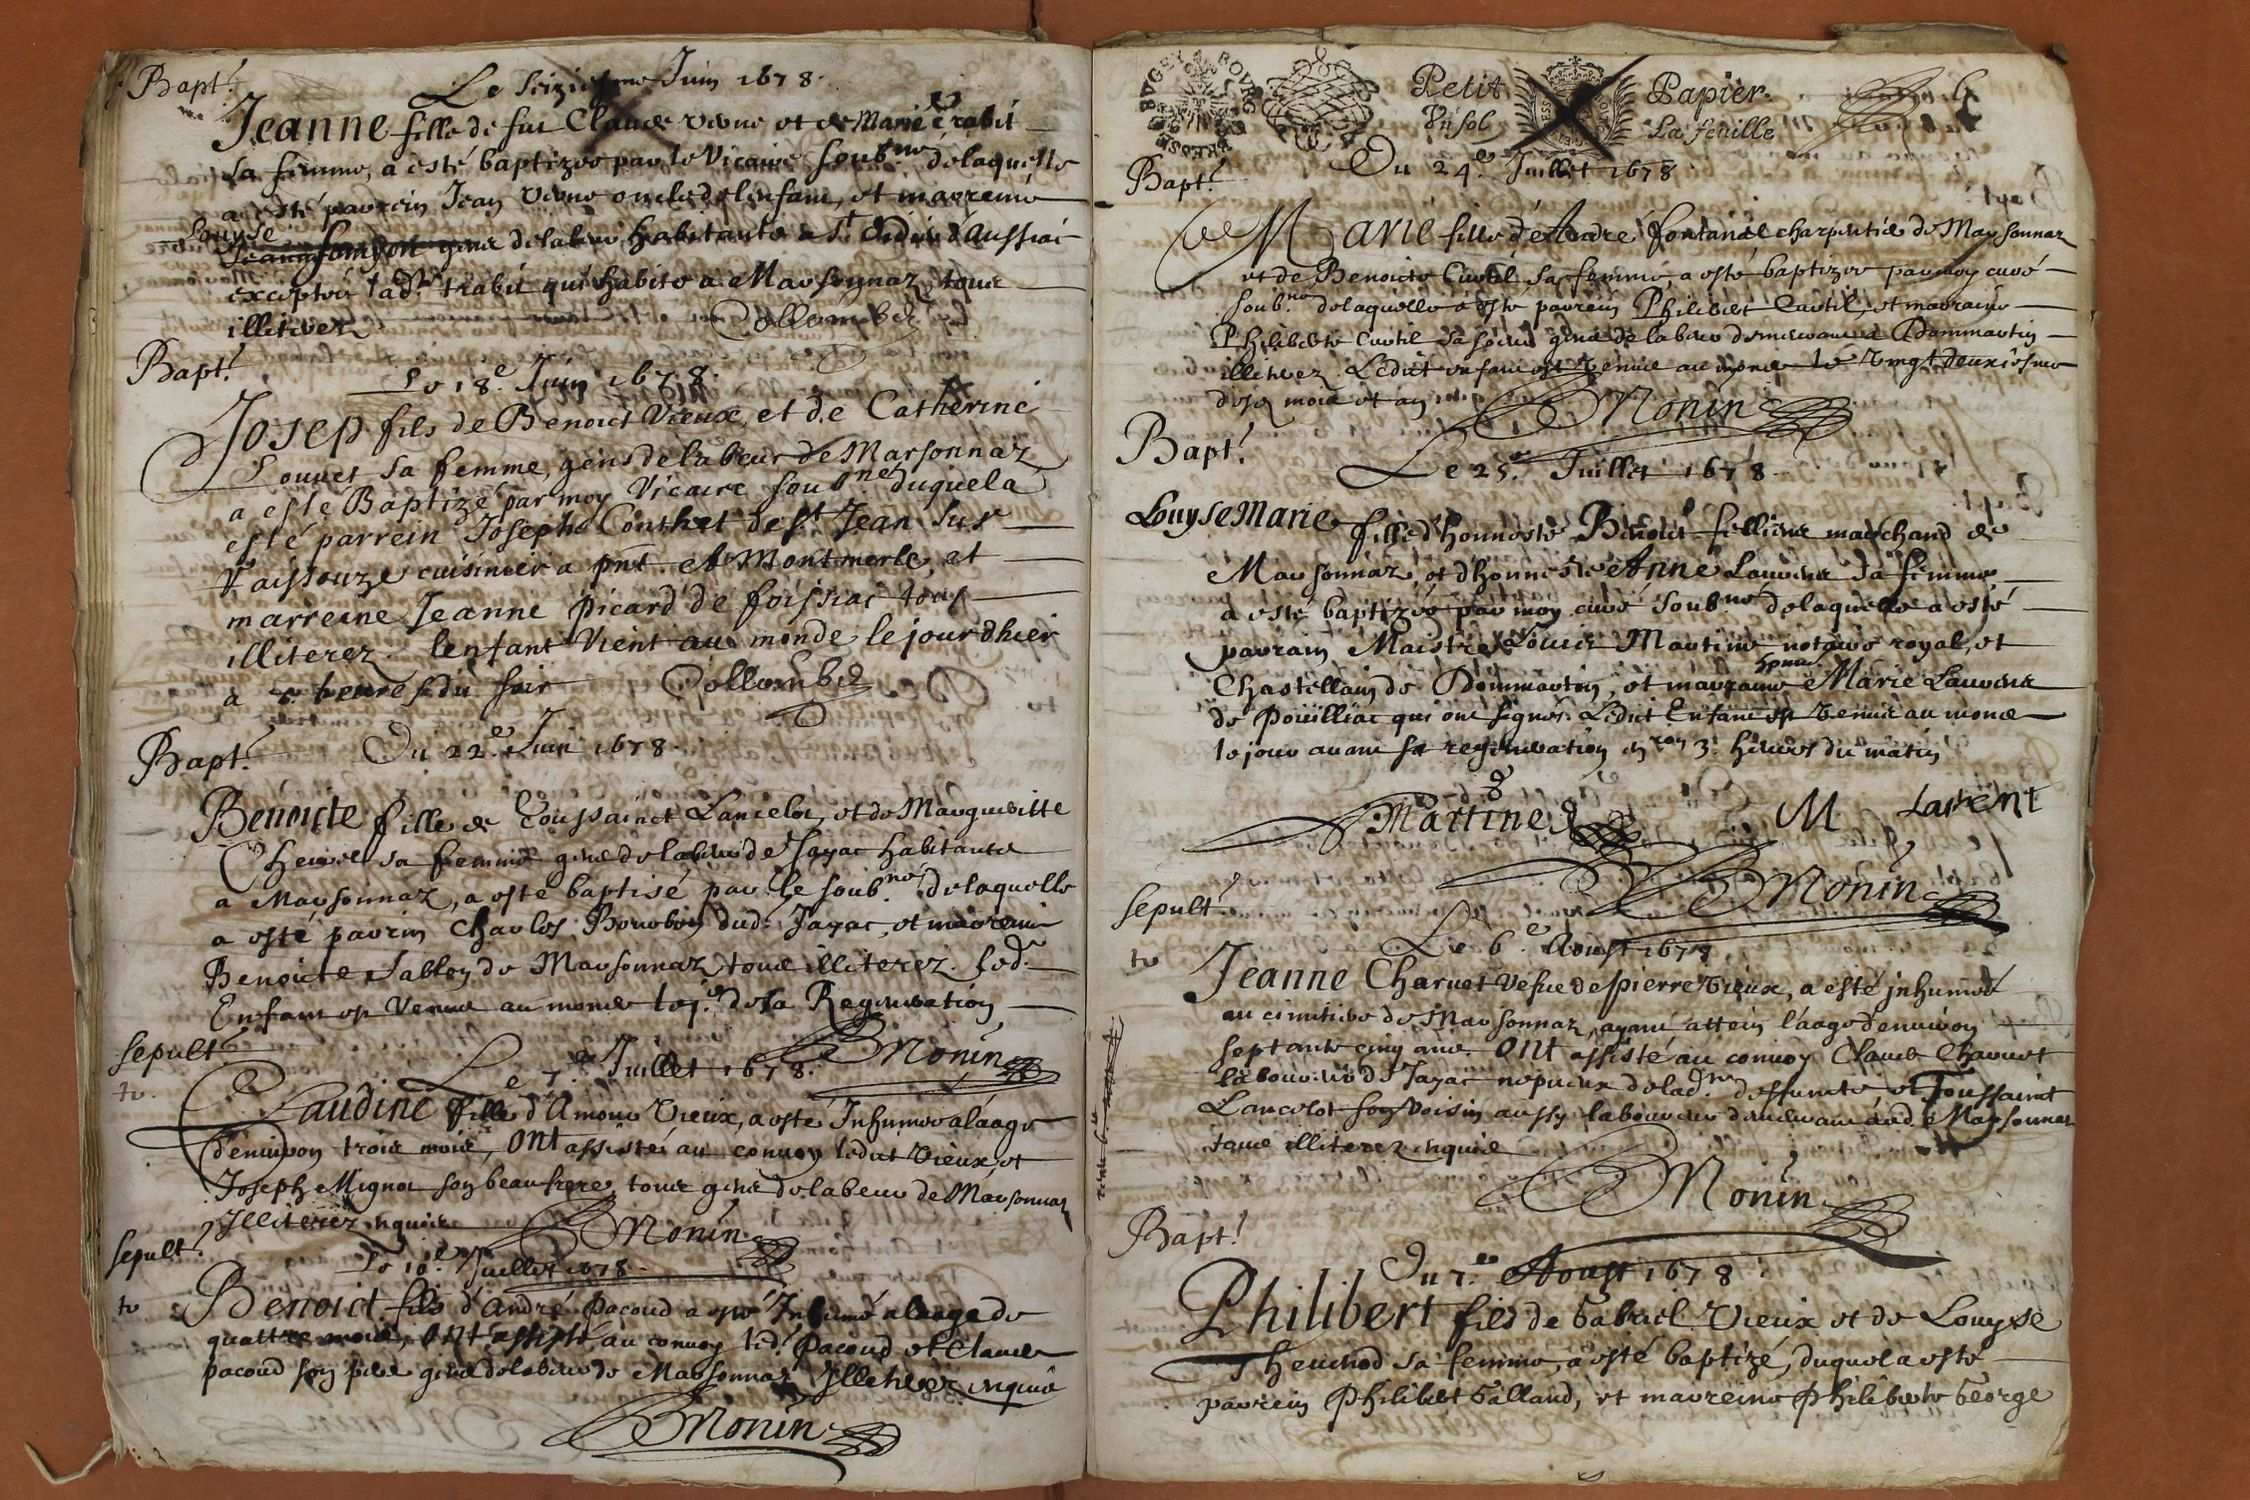 Bapt.
Le seiziesme Juin 1678.
Jeanne fille de feu Claude et de Marie trabit
sa femme, a esté baptizee par le Vicaire soub.né de laquelle
a esté parrein Jean oncle de lenfant, et marreine
Louyse
gens de labeur habitants a St d'Aussiac
exceptée lad.e trabit qui habite a Marsonnaz tous
illiterez Collombet
Bapt.
Le 18.e Juin 1678.
Josep fils de Benoict Vieux, et de Catherine
Louvet sa femme, gens de labeur de Marsonnaz
a esté Baptizé par moy Vicaire soub.né duquel a
esté parrein Joseph Conthet de St. Jean sur
raissouze cuisinier a pnt a Montmerle, et
marreine Jeanne picard de foissiac tous
illiterez. lenfant Vient au monde le jour dhier
a 5 heures du soir Collombet
Bapt.
Du 22.e Juin 1678.
Benoicte fille de Toussainct Lancelot, et de Margueritte
sa femme gens de labeur de Jayac habitants
a Marsonnaz, a esté baptisé par le soub.né de laquelle
a esté parrin Charles Bourbon dud. Jayac, et marreine
Benoicte Sablon de Marsonnaz tous illiterez. led.
Enfant est Venue au monde le j.r de sa Regeneration
Monin
sepult.
Le 7.e Juillet 1678.
Claudine fille d'Amour Vieux, a esté Inhumee a laage
d'environ trois mois, ont assistéz au convoy ledict Vieux, et
Joseph Mignot son beaufrere, tous gens de labeur de Marsonnaz
Illiterez enquis Monin
sepult.
Le 10.e Juillet 1678.
Benoict fils d'André pacoud a esté Inhumé a laage de
quattre mois, ont assisté au convoy led. pacoud et Claude
pacoud son pere gens de labeur de Marsonnaz Illiterez enquis
Monin
BOURG
BUGEY
BRESSE
Petit Papier
Un sol La feuille
Bapt.
Du 24.e Juillet 1678
Marie fille d'André fontanel charpentier de Marsonnaz
et de Benoicte Curtil sa femme, a esté baptizee par moy curé
soub.né de laquelle a esté parrein Philibert Curtil, et marraine
Philiberte Curtil sa soeur gens de labeur demeurants a Dommartin
illiterez. Ledict enfant est Venue au monde le Vingt deuxiesme
desd. mois et an Monin
Bapt.
Le 25.e Juillet 1678
Louyse Marie fille d'honneste Benoict marchand de
Marsonnaz, et d'honneste Anne Laurent sa femme
a esté baptizee par moy curé soub.né de laquelle a esté
parrain Maistre Louis Martine notaire royal, et
Chastellain de Dommartin, et marraine Marie Laurent
de Pouilliac qui ont signés. Ledict Enfant est Venue au monde
le jour avant sa regeneration 3. heures du matin
Martine
M Laurent
Monin
sepult.
Le 6.e Aoust 1678
Jeanne Charvet Vefue de pierre Vieux, a esté inhumee
au cimitiere de Marsonnaz, ayant attein l'aage d'environ
septante cinq ans. Ont assisté au convoy Claude Charvet
laboureur de Jayac nepueux de lad. deffuncte et Toussainct
Lancelot son Voisin aussy laboureur demeurant aud. Marsonnaz
tous illiterez enquis
Monin
Bapt.
Du 7.e Aoust 1678
Philibert fils de Gabriel Vieux et de Louyse
sa femme, a esté baptizé, duquel a esté
parrein Philibert Galland, et marreine Philiberte George